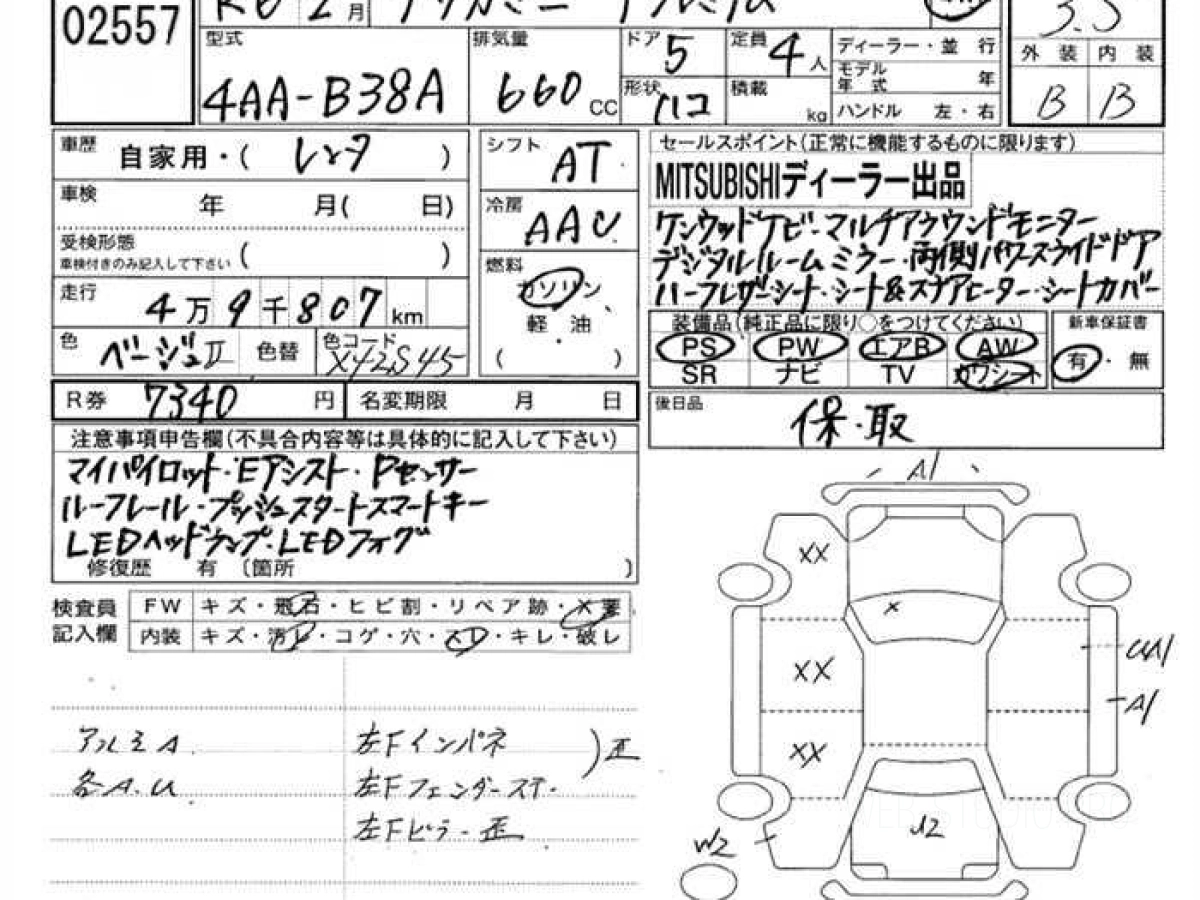 02557
R6 2月
デリカミニ Tプレミアム
3.5
型式
4AA-B38A
排気量
660 CC
ドア 5
定員 4人
形状 ハコ
積載 kg
ディーラー・並行
モデル年式 年
ハンドル 左・右
外装 内装
B B
車歴 自家用・( レンタ )
車検 年 月( 日)
受検形態
車検付きのみ記入して下さい ( )
走行 4万9千807km
色 ベージュII 色替
色コード X42S45
シフト AT
冷房 AAC
燃料 ガソリン
軽油
( )
セールスポイント(正常に機能するものに限ります)
MITSUBISHIディーラー出品
ケンウッドナビ・マルチアラウンドモニター
デジタルルームミラー・両側パワースライドドア
ハーフレザーシート・シート&ステアヒーター・シートカバー
装備品(純正品に限り○をつけてください)
PS PW エアB AW
SR ナビ TV カワシート
新車保証書
有・無
R券 7340 円
名変期限 月 日
後日品 保・取
注意事項申告欄(不具合内容等は具体的に記入して下さい)
マイパイロット・Eアシスト・Pセンサー
ルーフレール・プッシュスタートスマートキー
LEDヘッドランプ・LEDフォグ
修復歴 有 〔箇所 〕
検査員記入欄
FW キズ・飛石・ヒビ割・リペア跡・X要
内装 キズ・汚レ・コゲ・穴・スレ・キレ・破レ
アルミA.
各A.U.
左Fインパネ
左Fフェンダーステ.
)歪
左Fピラー歪
A1
XX
X
XX
XX
UA1
A1
U2
W2